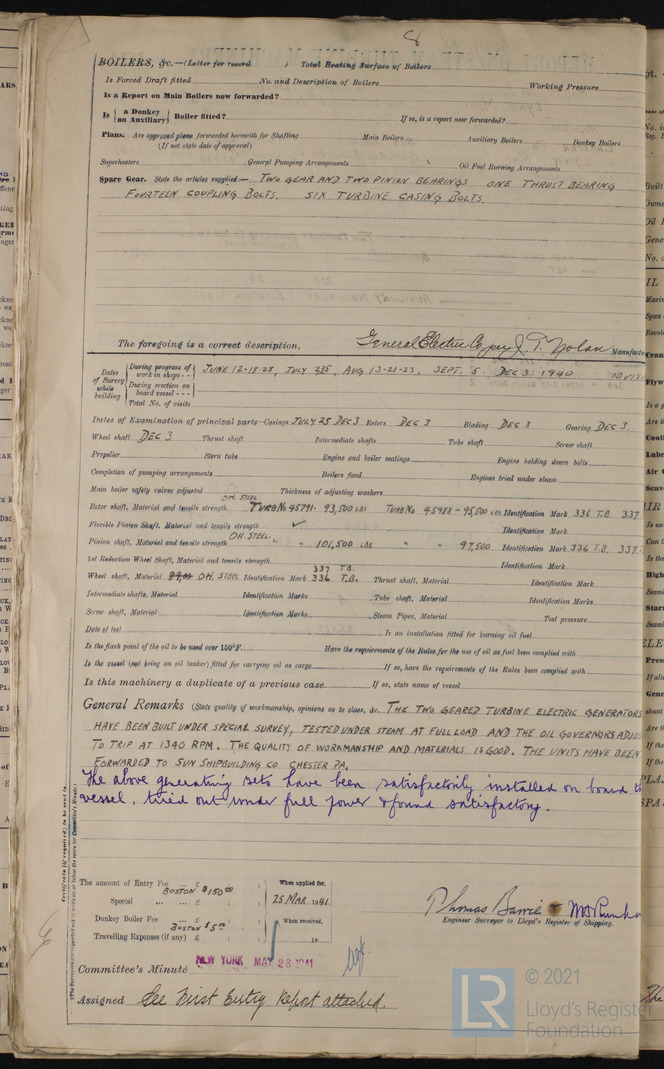 8
BOILERS, &c.—(Letter for record ) Total Heating Surface of Boilers
Is Forced Draft fitted No. and Description of Boilers Working Pressure
Is a Report on Main Boilers now forwarded?
Is { a Donkey / an Auxiliary } Boiler fitted? If so, is a report now forwarded?
Plans. Are approved plans forwarded herewith for Shafting Main Boilers Auxiliary Boilers Donkey Boilers
(If not state date of approval)
Superheaters General Pumping Arrangements Oil Fuel Burning Arrangements
Spare Gear. State the articles supplied:— TWO GEAR AND TWO PINION BEARINGS ONE THRUST BEARING
FOURTEEN COUPLING BOLTS. SIX TURBINE CASING BOLTS.
The foregoing is a correct description, General Electric Co per J. T. Nolan Manufact
Dates of Survey while building
During progress of work in shops - - JUNE 12-18-28, JULY 225, AUG 13-21-23, SEPT. 5. DEC 3. 1940
During erection on board vessel - - -
Total No. of visits
Dates of Examination of principal parts—Casings JULY 25 DEC 3 Rotors DEC 3 Blading DEC 3 Gearing DEC 3.
Wheel shaft DEC 3 Thrust shaft Intermediate shafts Tube shaft Screw shaft
Propeller Stern tube Engine and boiler seatings Engine holding down bolts
Completion of pumping arrangements Boilers fixed Engines tried under steam
Main boiler safety valves adjusted Thickness of adjusting washers
Rotor shaft, Material and tensile strength OH. STEEL TURB No 45791. 93,500 LBS TURB No 45988 - 95,500 LBS. Identification Mark 336 T.B. 337
Flexible Pinion Shaft, Material and tensile strength ✓ Identification Mark
Pinion shaft, Material and tensile strength OH. STEEL. " " 101,500 LBS " " 97,500 Identification Mark 336 T.B. 337.
1st Reduction Wheel Shaft, Material and tensile strength Identification Mark
Wheel shaft, Material OH. STEEL Identification Mark 337 T.B. 336 T.B. Thrust shaft, Material Identification Mark
Intermediate shafts, Material Identification Marks Tube shaft, Material Identification Marks
Screw shaft, Material Identification Marks Steam Pipes, Material Test pressure
Date of test Is an installation fitted for burning oil fuel
Is the flash point of the oil to be used over 150°F. Have the requirements of the Rules for the use of oil as fuel been complied with
Is the vessel (not being an oil tanker) fitted for carrying oil as cargo If so, have the requirements of the Rules been complied with
Is this machinery a duplicate of a previous case If so, state name of vessel
General Remarks (State quality of workmanship, opinions as to class, &c. THE TWO GEARED TURBINE ELECTRIC GENERATORS
HAVE BEEN BUILT UNDER SPECIAL SURVEY, TESTED UNDER STEAM AT FULL LOAD AND THE OIL GOVERNORS ADJUS
TO TRIP AT 1340 RPM. THE QUALITY OF WORKMANSHIP AND MATERIALS IS GOOD. THE UNITS HAVE BEEN
FORWARDED TO SUN SHIPBUILDING CO CHESTER PA.
The above generating sets have been satisfactorily installed on board th
vessel, tried out under full power & found satisfactory.
The amount of Entry Fee ... £ : : When applied for,
Special ... ... £ BOSTON $150.00 : : 25 MAR 1941
Donkey Boiler Fee ... £ : : When received,
Travelling Expenses (if any) £ BOSTON $5.00 : : 19
Thomas Barrie
Engineer Surveyor to Lloyd's Register of Shipping.
Committee's Minute NEW YORK MAY 28 1941
Assigned See First Entry Report attached.
© 2021
LR Lloyd's Register
Foundation